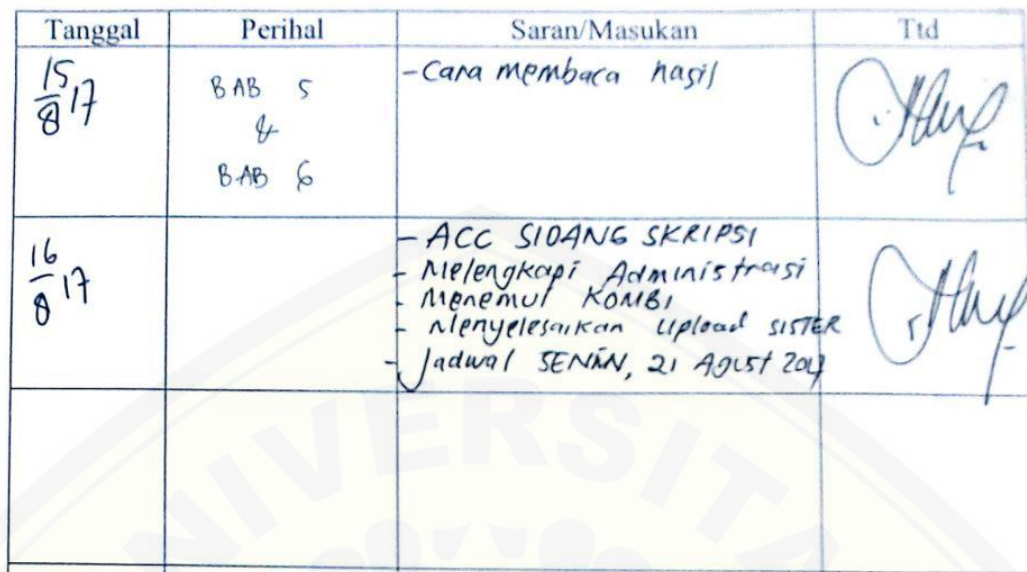 Tanggal Perihal Saran/Masukan Ttd
15/8 17
BAB 5
&
BAB 6
- Cara membaca hasil
16/8 17
- ACC SIDANG SKRIPSI
- Melengkapi Administrasi
- Menemui KOMBI
- Menyelesaikan Upload SISTER
- Jadwal SENIN, 21 Agust 2017
NIVERSITA